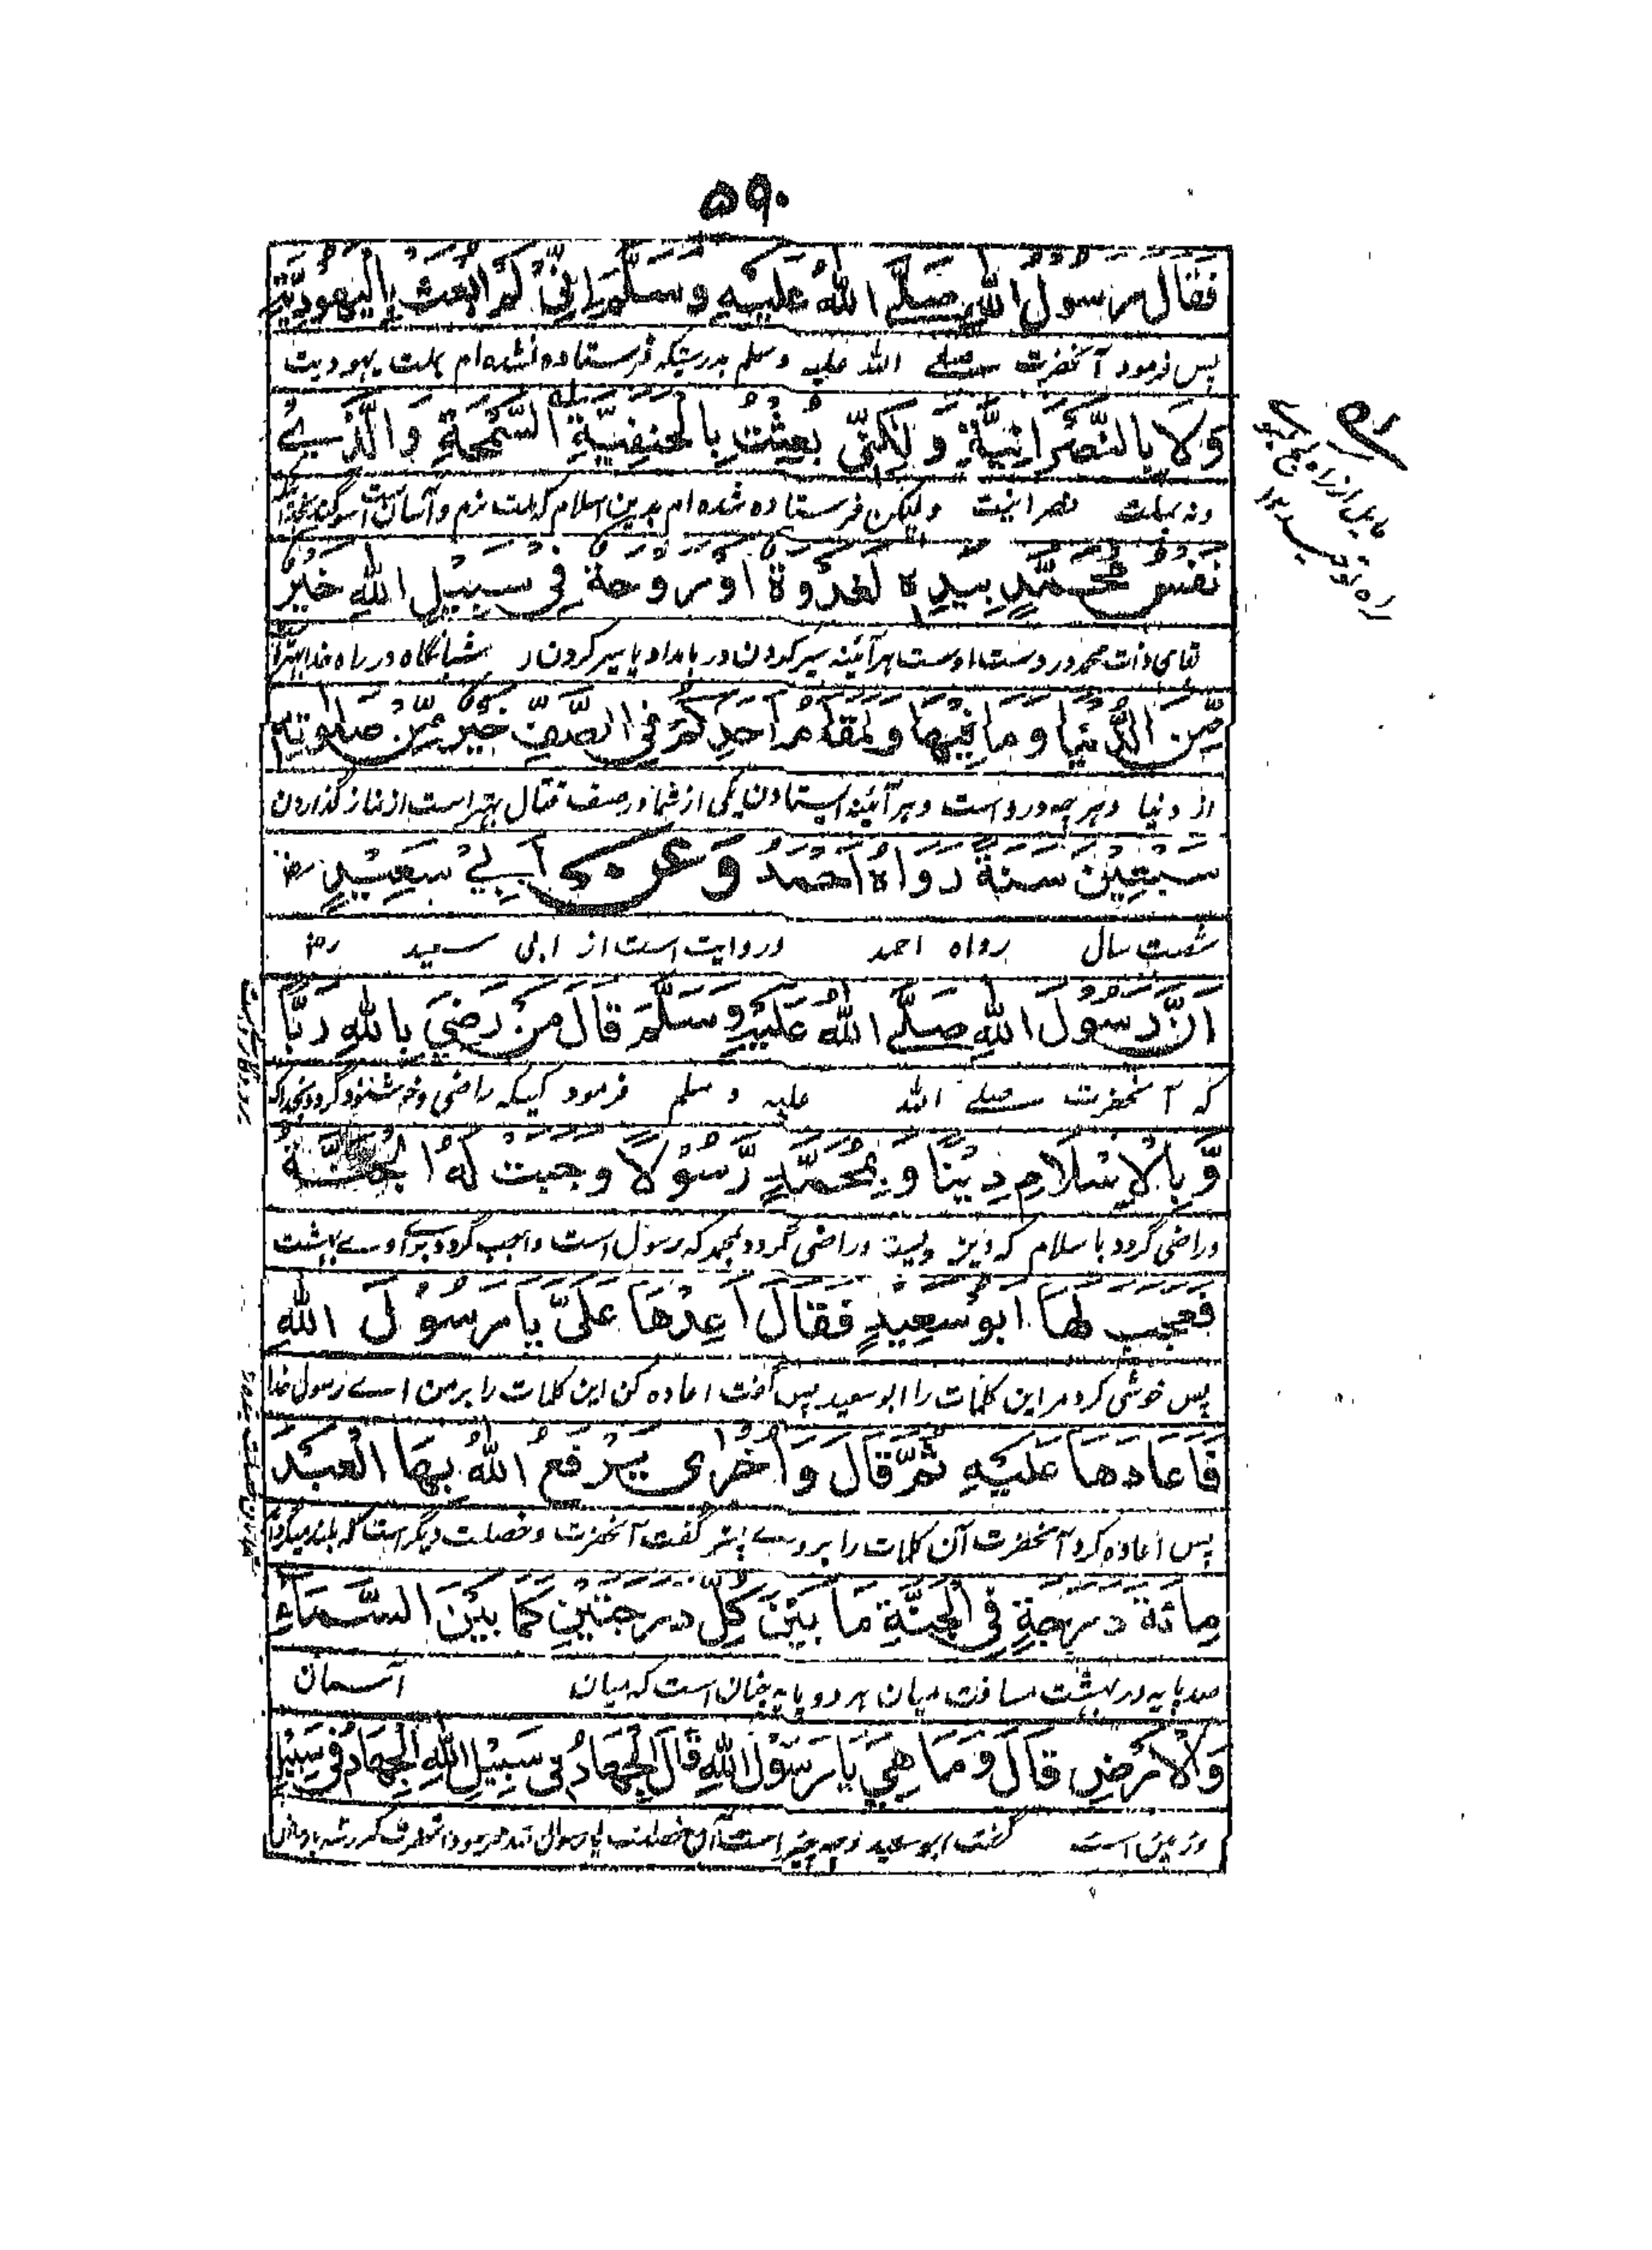 ۵۹۰
فَقَالَ رَسُولُ اللهِ صَلَّے اللهُ عَلَيْهِ وَسَلَّمَ اِنِّیْ لَمْ اُبْعَثْ بِالْيَهُوْدِيَّةِ
پس فرمود آنحضرت صلے الله علیه وسلم بدرستیکه فرستاده نشده ام بملت یهودیت
وَلَا بِالنَّصْرَانِيَّةِ وَلٰكِنِّیْ بُعِثْتُ بِالْحَنِيْفِيَّةِ السَّمْحَةِ وَالَّذِیْ
ونه بملت نصرانیت ولیکن فرستاده شده ام بدین اسلام که ملت نرم وآسان است سوگند بخدا
نَفْسُ مُحَمَّدٍ بِيَدِهٖ لَغَدْوَةٌ اَوْ رَوْحَةٌ فِیْ سَبِيْلِ اللهِ خَيْرٌ
بقای ذات محمد در دست اوست هرآئینه سیر کردن در بامداد یا سیر کردن در شبانگاه در راه خدا بهتر
مِّنَ الدُّنْيَا وَمَا فِيْهَا وَلَمَقَامُ اَحَدِكُمْ فِی الصَّفِّ خَيْرٌ مِّنْ صَلٰوتِهٖ
از دنیا وهر چه دروست وهر آئینه ایستادن یکی از شما در صف قتال بهتر است از نماز گذاردن
سَبْعِيْنَ سَنَةً رَوَاهُ اَحْمَدُ وَعَنْ اَبِیْ سَعِيْدٍ رض
شصت سال رواه احمد وروایت است از ابی سعید رض
اَنَّ رَسُوْلَ اللهِ صَلَّے اللهُ عَلَيْهِ وَسَلَّمَ قَالَ مَنْ رَضِیَ بِاللهِ رَبًّا
که آنحضرت صلے الله علیه وسلم فرمود کسیکه راضی وخوشنود گردد بخدا که
وَّبِالْاِسْلَامِ دِيْنًا وَّبِمُحَمَّدٍ رَّسُوْلًا وَجَبَتْ لَهُ الْجَنَّةُ
وراضی گردد باسلام که دین ویست وراضی گردد بمحمد که رسول است واجب گردد برای وے بهشت
فَعَجِبَ لَهَا اَبُوْ سَعِيْدٍ فَقَالَ اَعِدْهَا عَلَیَّ يَا رَسُوْلَ اللهِ
پس خوشی کرد مر این کلمات را ابوسعید پس گفت اعاده کن این کلمات را بر من اے رسول خدا
فَاَعَادَهَا عَلَيْهِ ثُمَّ قَالَ وَاُخْرٰی يَرْفَعُ اللهُ بِهَا الْعَبْدَ
پس اعاده کرد آنحضرت آن کلمات را بروے پستر گفت آنحضرت وخصلت دیگر است که بلند میگرداند
مِائَةَ دَرَجَةٍ فِی الْجَنَّةِ مَا بَيْنَ كُلِّ دَرَجَتَيْنِ كَمَا بَيْنَ السَّمَاءِ
صد پایه در بهشت مسافت میان هر دو پایه چنان است که میان آسمان
وَالْاَرْضِ قَالَ وَمَا هِیَ يَا رَسُوْلَ اللهِ قَالَ الْجِهَادُ فِیْ سَبِيْلِ اللهِ الْجِهَادُ فِیْ سَبِيْلِ
وزمین است گفت ابوسعید وچه چیز است آن خصلت یا رسول